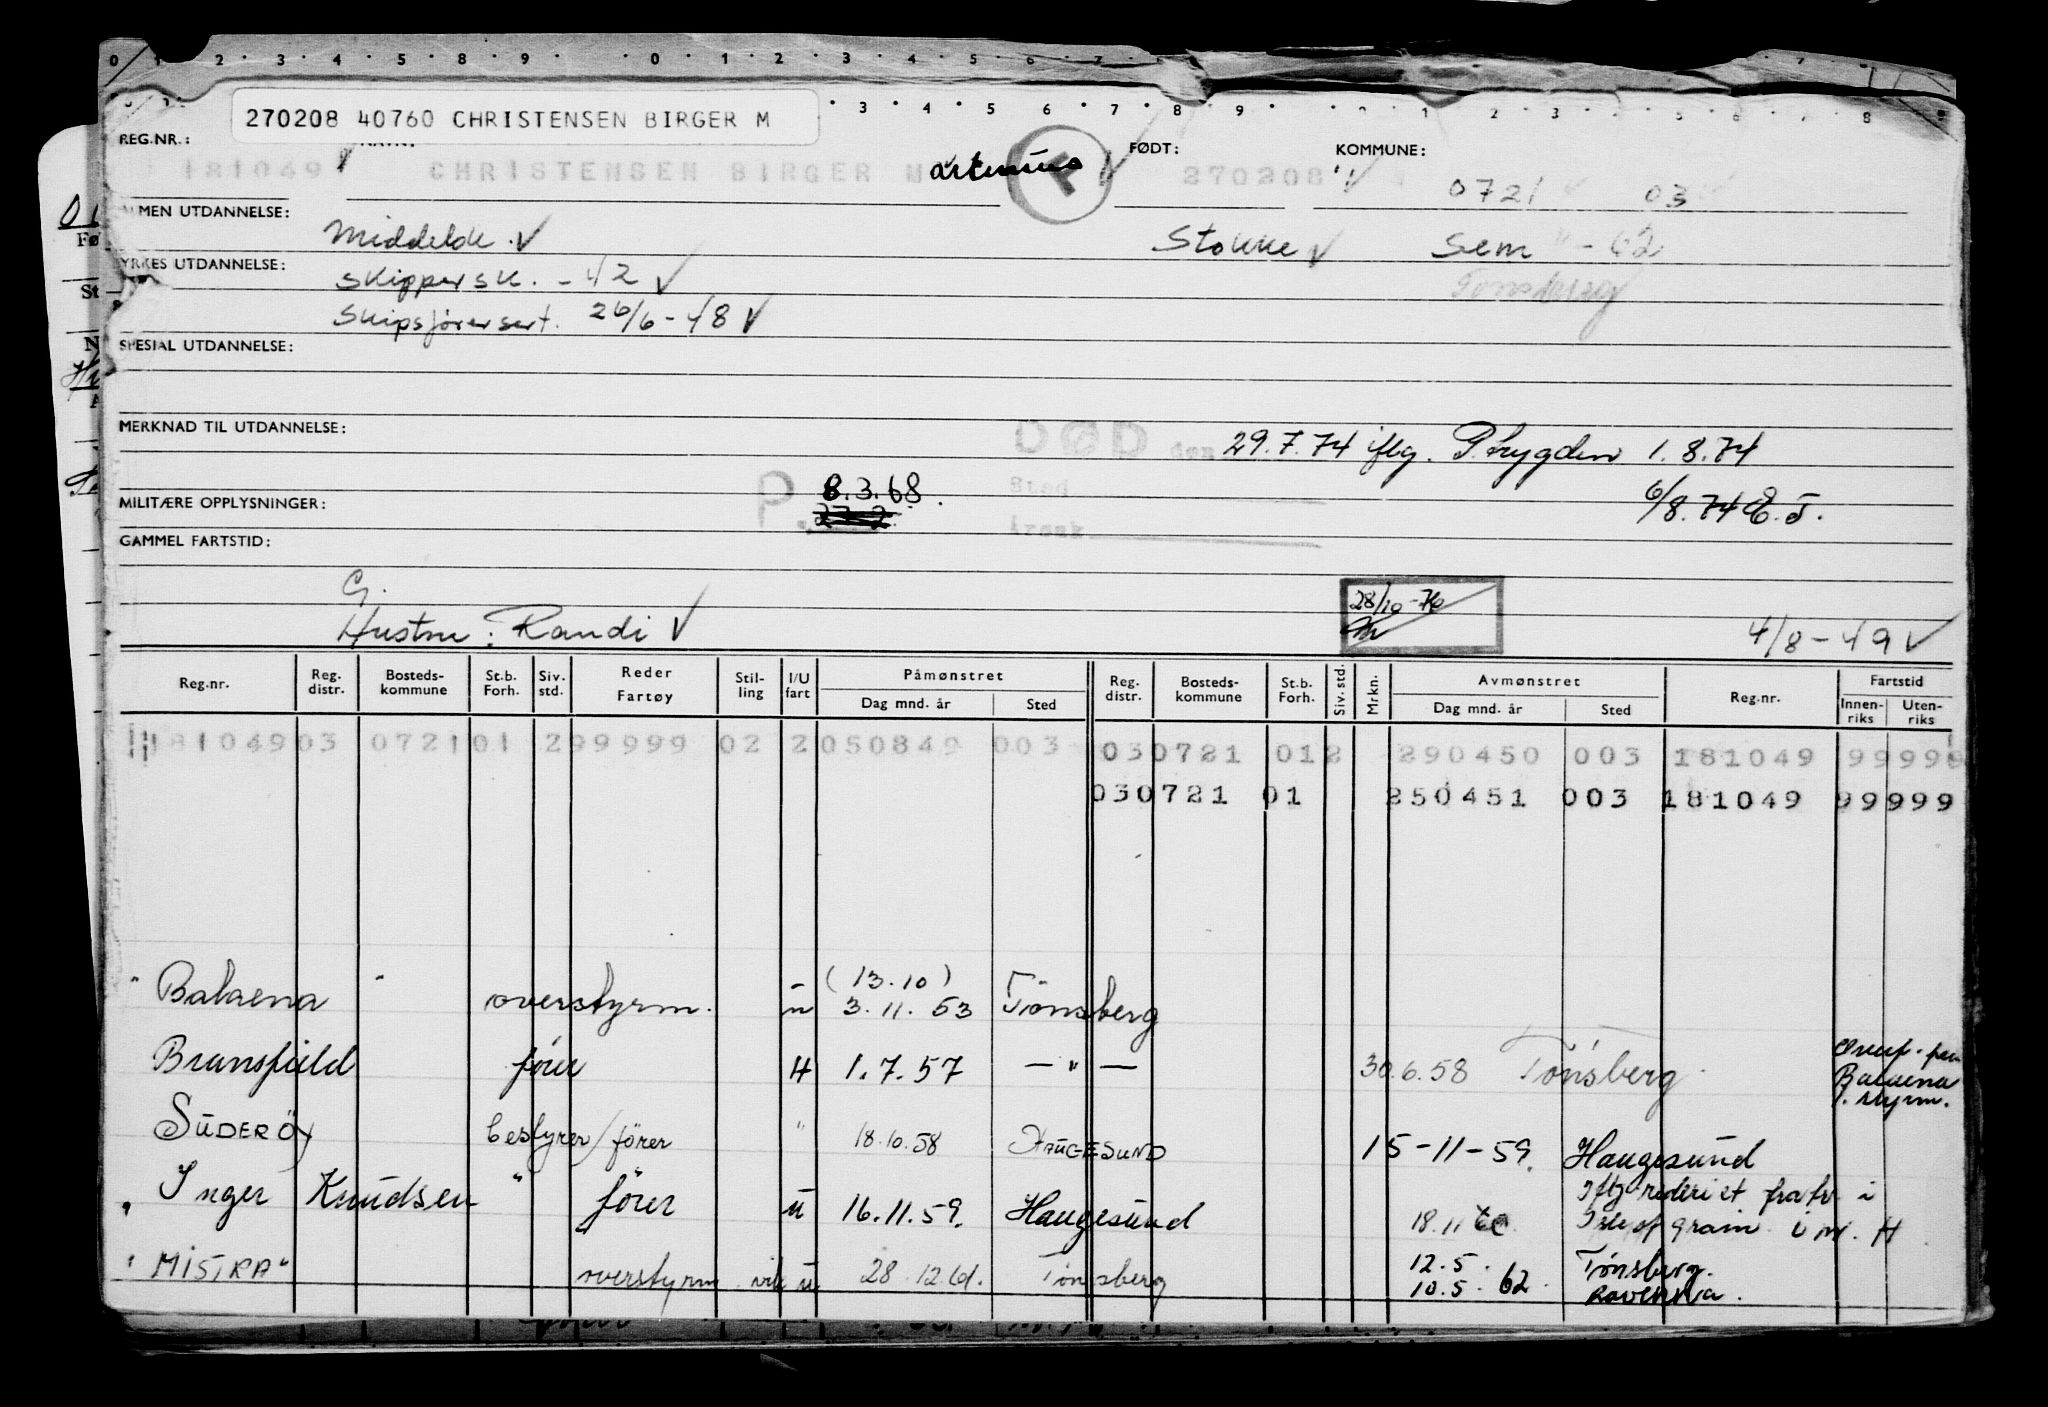 0 1 2 3 4 5 8 9 0 1 2 3 4 5 6 7 8 7
3 4 5 6 7 8 9 1 2 3 5 6 7 8
270208 40760 CHRISTENSEN BIRGER M
REG.NR.: FØDT: KOMMUNE:
181049 CHRISTENSEN BIRGER Martinus F 270208 0721 03
ALMEN UTDANNELSE: Middelsk. Stokke Sem - 62
YRKES UTDANNELSE: Skippersk. - 42 Tønsberg
Skipsförersert. 26/6 - 48
SPESIAL UTDANNELSE:
MERKNAD TIL UTDANNELSE: DØD den 29.7.74 iflg. P.trygden 1.8.74
P. 8.3.68. Sted 6/8.74 E.T.
MILITÆRE OPPLYSNINGER: 27.2 Årsak
GAMMEL FARTSTID:
G. 28/10-70
Hustru: Randi 4/8 - 49
Reg.nr. Reg. distr. Bosteds-kommune St.b. Forh. Siv. std. Reder Fartøy Stil-ling I/U fart Påmønstret Dag mnd. år Sted Reg. distr. Bosteds-kommune St.b. Forh. Siv. std. Mrkn. Avmønstret Dag mnd. år Sted Reg.nr. Fartstid Innen-riks Uten-riks
181049 03 0721 01 2 99999 02 2 050849 003 030721 01 2 290450 003 181049 99999
030721 01 250451 003 181049 99999
(13.10)
" Balaena " overstyrm. u 3.11.53 Tönsberg
Bransfield förer H 1.7.57 — " — 30.6.58 Tönsberg Overf. fra Balaena
SÜDERÖY bestyrer/förer " 18.10.58 HAUGESUND 15-11-59. Haugesund
" Inger Knudsen " förer u 16.11.59. Haugesund 18.11.60 Iflg rederiet fratr. i Isle of Grain
" MISTRA" overstyrm vik u 28.12.61. Tönsberg 12.5. Tönsberg.
10.5.62. Ravenna.